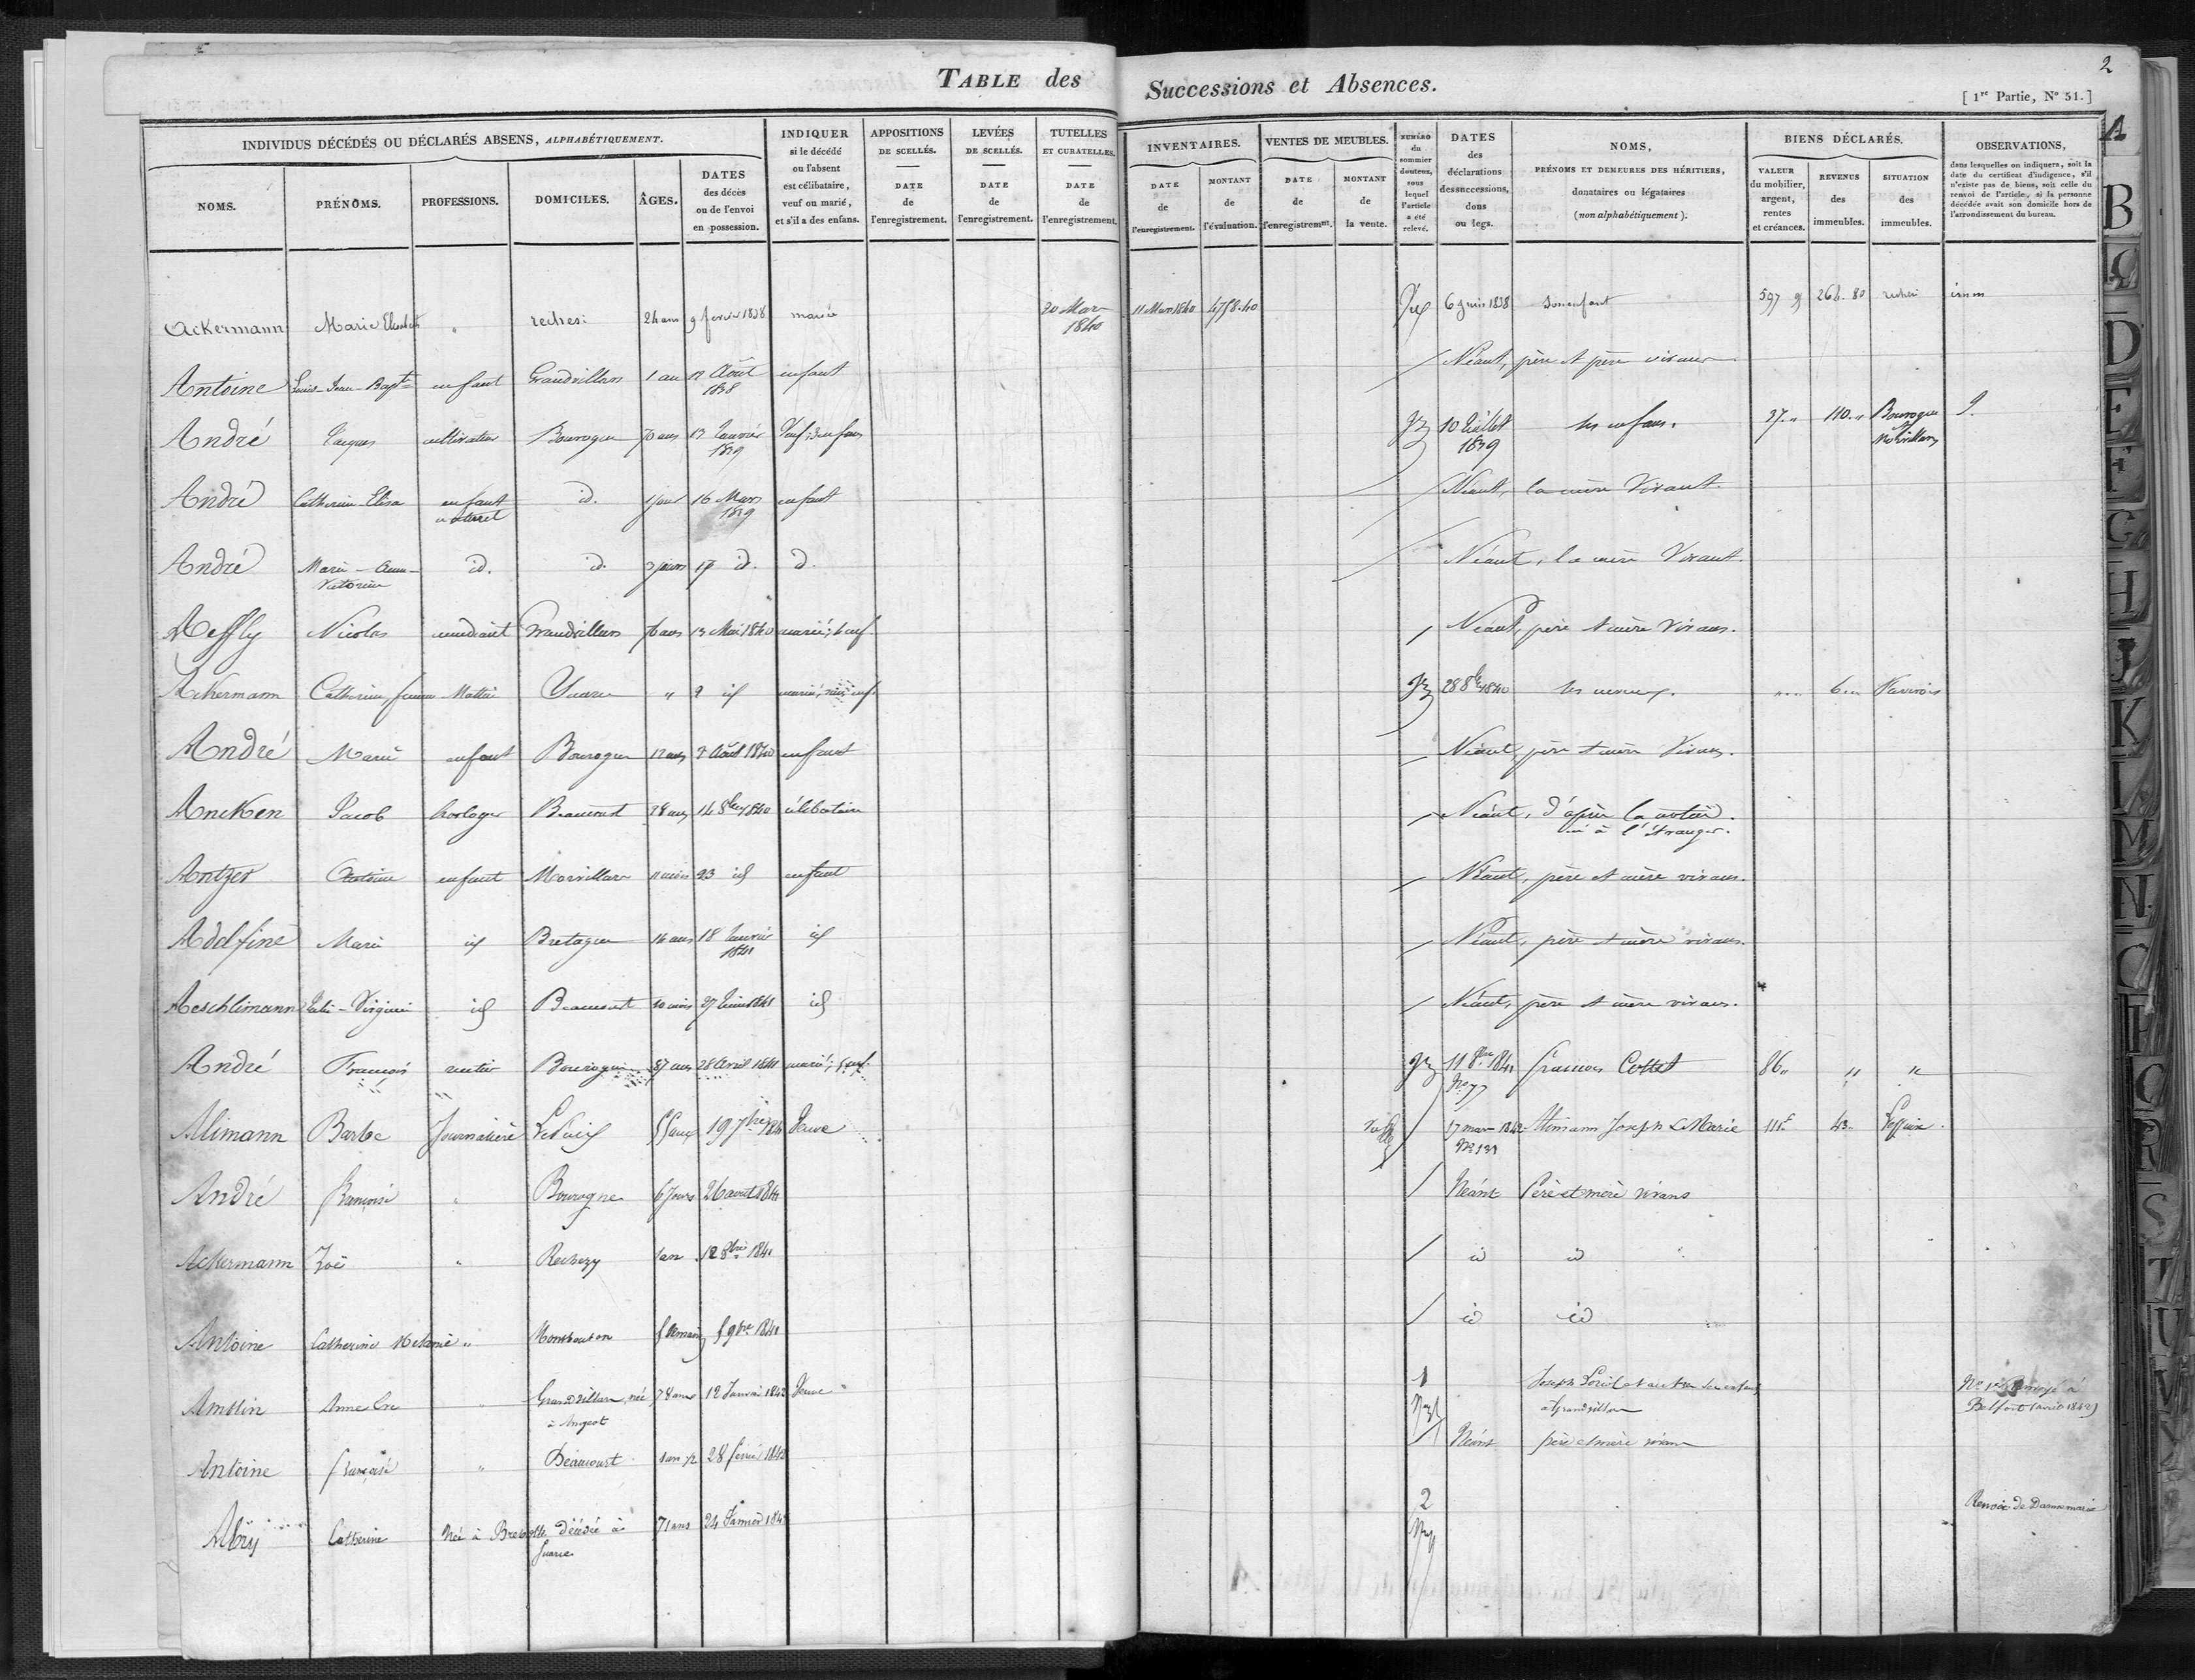 TABLE des Successions et Absences.
2
[ 1re Partie, No 51. ]
INDIVIDUS DÉCÉDÉS OU DÉCLARÉS ABSENS, ALPHABÉTIQUEMENT.
NOMS.
PRÉNOMS.
PROFESSIONS.
DOMICILES.
ÂGES.
DATES
des décès
ou de l'envoi
en possession.
INDIQUER
si le décédé
ou l'absent
est célibataire,
veuf ou marié,
et s'il a des enfans.
APPOSITIONS
DE SCELLÉS.
DATE
de
l'enregistrement.
LEVÉES
DE SCELLÉS.
DATE
de
l'enregistrement.
TUTELLES
ET CURATELLES.
DATE
de
l'enregistrement.
INVENTAIRES.
DATE
de
l'enregistrement.
MONTANT
de
l'évaluation.
VENTES DE MEUBLES.
DATE
de
l'enregistremnt.
MONTANT
de
la vente.
NUMÉRO
du
sommier
douteux,
sous
lequel
l'article
a été
relevé.
DATES
des
déclarations
des successions,
dons
ou legs.
NOMS,
PRÉNOMS ET DEMEURES DES HÉRITIERS,
donataires ou légataires
(non alphabétiquement).
BIENS DÉCLARÉS.
VALEUR
du mobilier,
argent,
rentes
et créances.
REVENUS
des
immeubles.
SITUATION
des
immeubles.
OBSERVATIONS,
dans lesquelles on indiquera, soit la
date du certificat d'indigence, s'il
n'existe pas de biens, soit celle du
renvoi de l'article, si la personne
décédée avait son domicile hors de
l'arrondissement du bureau.
Ackermann Marie Elisabeth " 24 ans 9 fevrier 1838 mariée 20 Mars 1840 11 Mars 1840 4758.40 6 juin 1838 son enfant 597 264.80
Antoine Louis-Jean-Bapte enfant Grandvillars 1 an 12 Août 1838 enfant Néant, père et père vivans
André Jacques cultivateur Bourogne 70 ans 13 Janvier 1839 Veuf; 3 enfans 10 Juillet 1839 ses enfans. 37. " 110. " Bourogne et Morvillars
André Catherine-Elisa enfant naturel id. 1 jour 16 Mars 1839 enfant Néant, la mère Vivant.
André Marie-Anne-Victorine id. id. 2 jours 17 id. id. Néant, la mère Vivant.
Aeffly Nicolas mendiant Grandvillars 13 Mai 1840 Néant, père et mère Vivans.
Ackermann Catherine, femme Mattei " 2 id 28 8bre 1840 ses neveux. 6
André Marie enfant Bourogne 12 ans 2 Août 1840 enfant Néant, père et mère Vivans.
Ancken Jacob horloger Beaucourt 28 ans 14 8bre 1840 célibataire Néant, d'après la notorié. né à l'étranger.
Antzer Antoine enfant Morvillars 11 mois 23 id enfant Néant, père et mère vivans.
Adelfine Marie id Bretagne 16 ans 18 Janvier 1841 id Néant, père et mère vivans.
Aeschlimann Julie-Virginie id Beaucourt 10 mois 27 Juin 1841 id Néant, père et mère vivans.
André François rentier Bourogne 87 ans 28 Avril 1841 marié; 5 enf. 11 8bre 1841 No 77 François Cottet 86 " " "
Alimann Barbe Journalière 19 7bre 1841 Veuve 17 mars 1842 No 131 Alimann Joseph & Marie 111f 43 "
André Françoise " Bourogne 6 Jours 26 aout 1841 Neant Père et mère vivans
Ackermann Zoë " Rechezy 1 an 12 8bre 1841 id id
Antoine Catherine Melanie " Montbouton 5 9bre 1841 id id
Amblin Anne Eve " Grandvillars, née à Angeot 78 ans 12 Janvier 1842 Veuve 1 à Grandvillars No 1er Renvoyé à Belfort 1842)
Antoine Françoise " Béaucourt 1 an 1/2 28 fevrier 1842 Néant père et mère vivans
Albry Catherine Née à Brebotte décédée à Suarce 71 ans 24 Janvier 1842 2 Renvoi de Dannemarie
A
B
C
D
E
F
G
H
J
K
L
M
N
O
P
Q
R
S
T
U
V